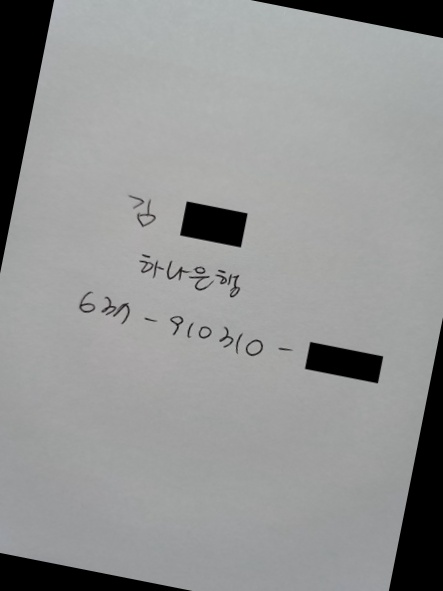 김
하나은행
637 - 910310 -